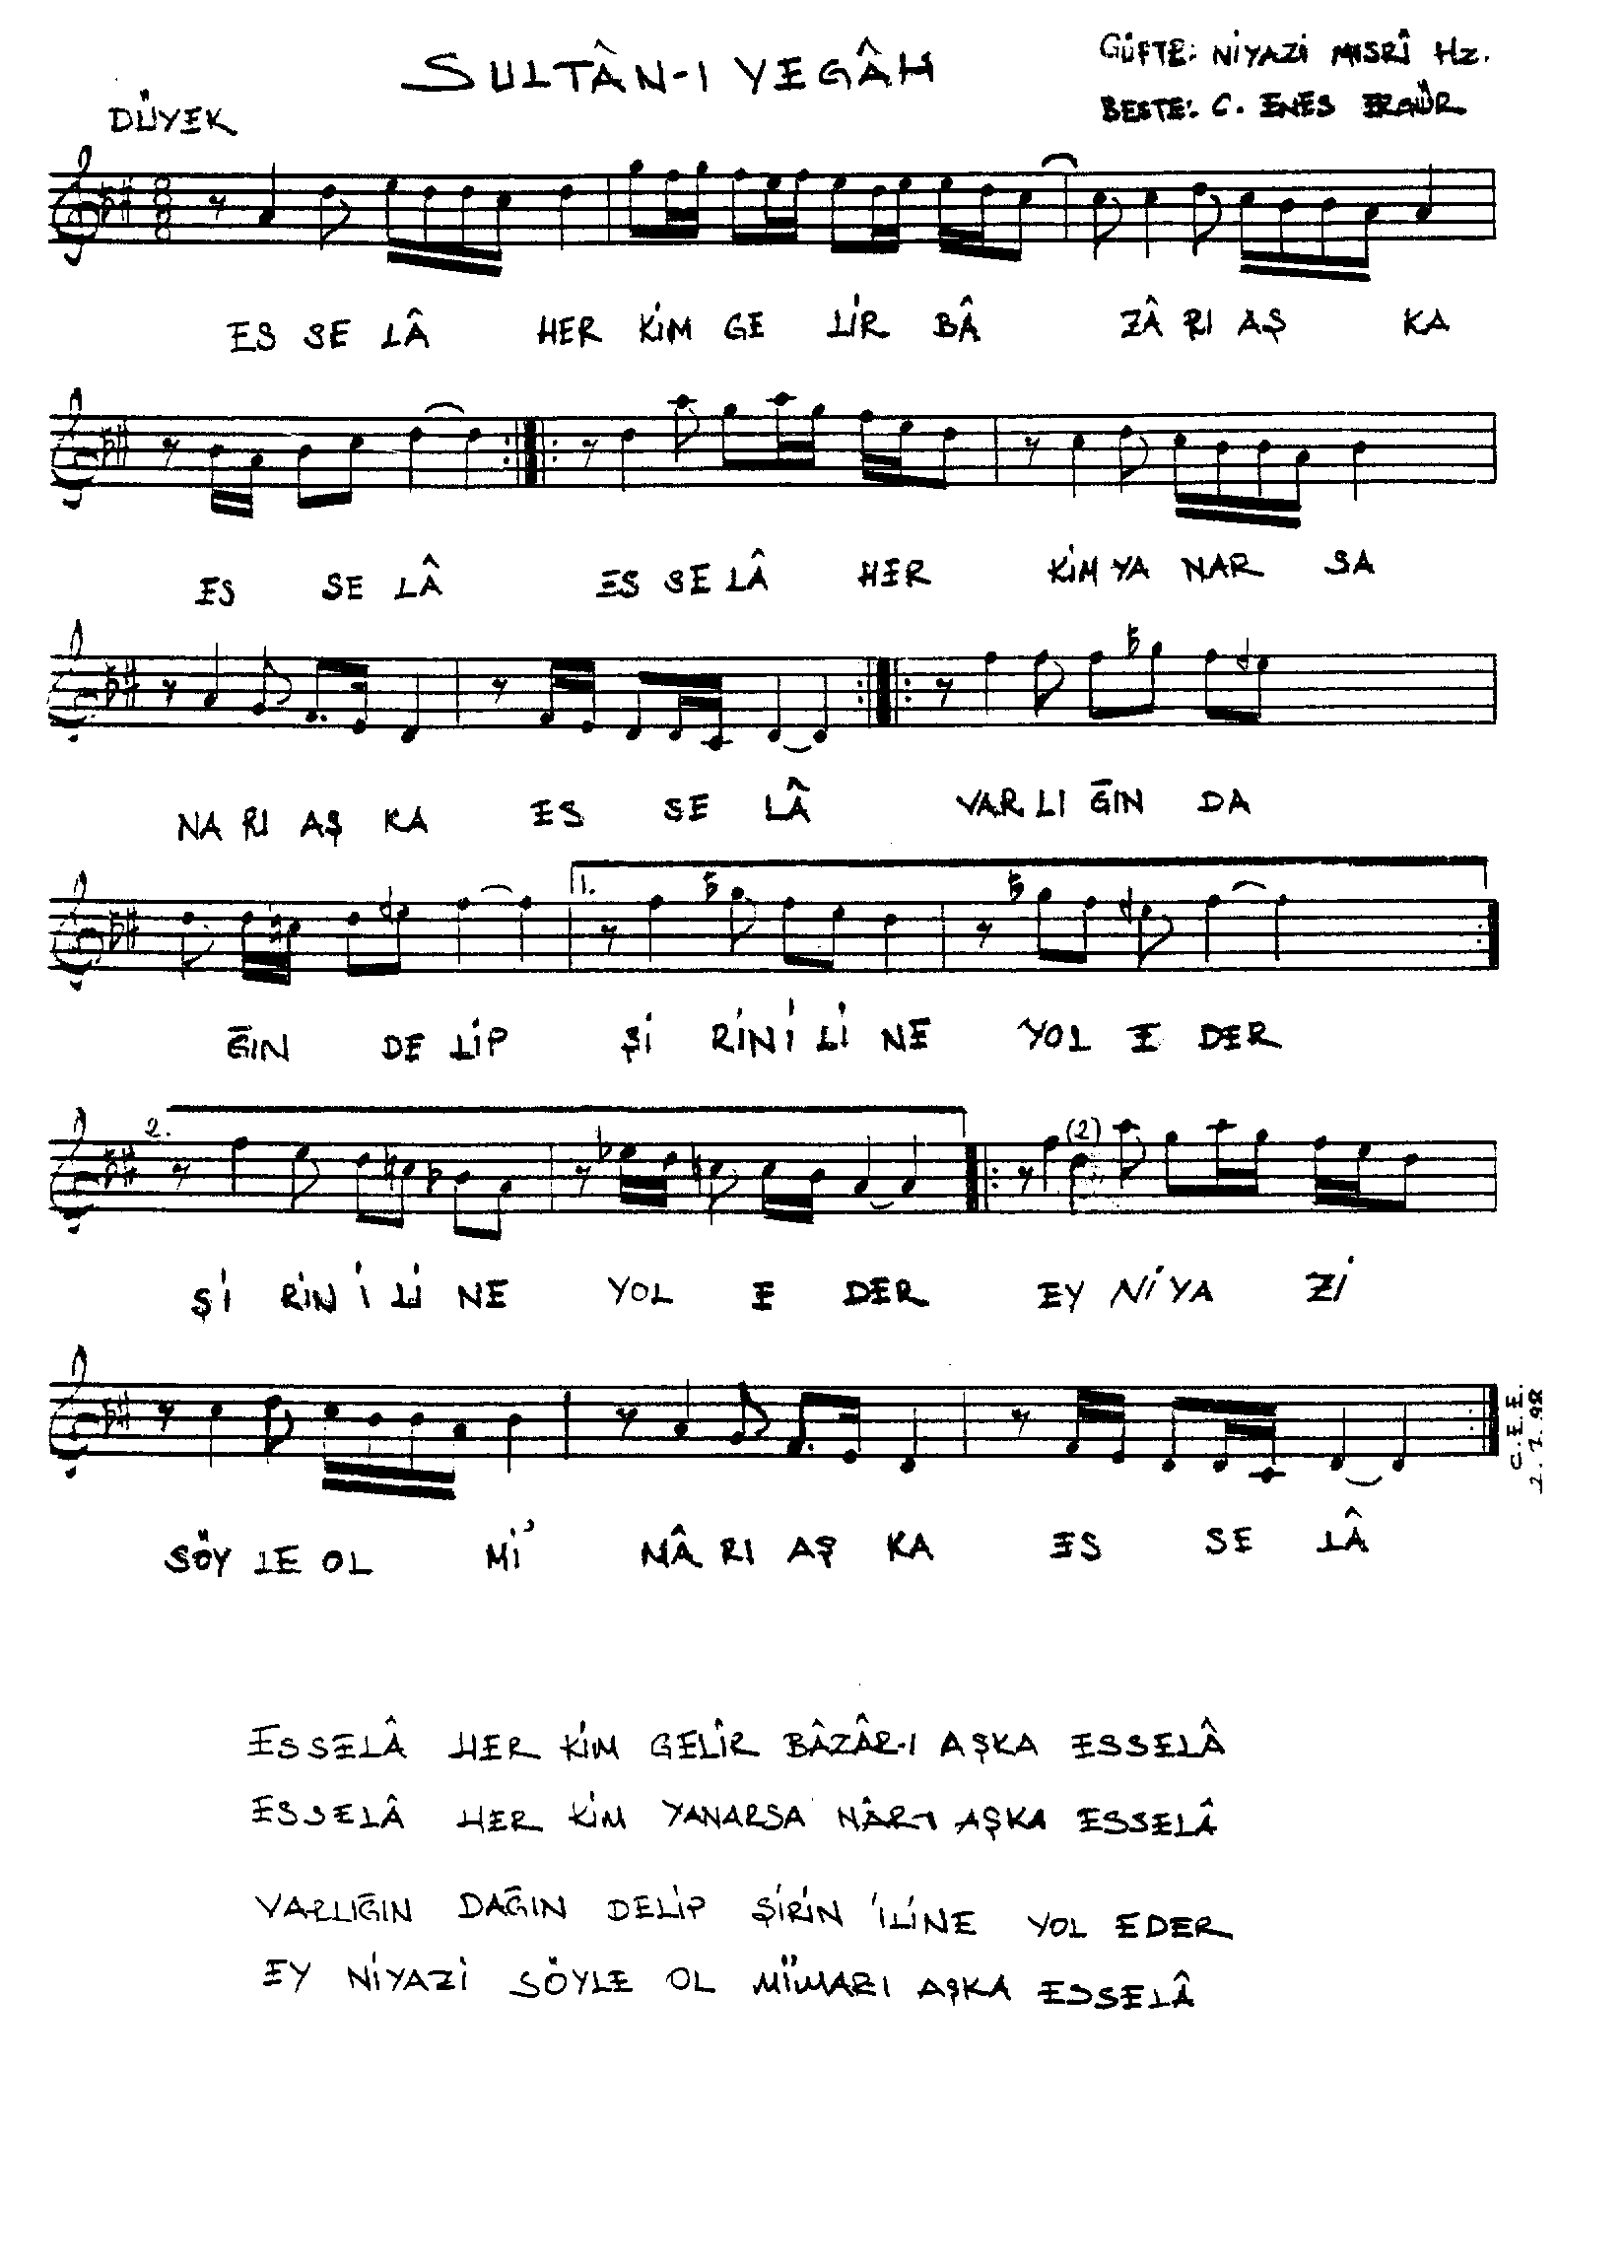 SULTÂN-I YEGÂH
GÜFTE: NİYAZİ MISRÎ Hz.
BESTE: C. ENES ERGÜR
DÜYEK
8
8
ES SE LÂ HER KİM GE LİR BÂ ZÂ RI AŞ KA
ES SE LÂ ES SE LÂ HER KİM YA NAR SA
NA RI AŞ KA ES SE LÂ VAR LI ĞIN DA
1.
ĞIN DE LİP Şİ RİN İ Lİ NE YOL E DER
2.
(2)
Şİ RİN İ Lİ NE YOL E DER EY Nİ YA Zİ
SÖY LE OL Mİ' MÂ RI AŞ KA ES SE LÂ
C.E.E.
ESSELÂ HER KİM GELİR BÂZÂR-I AŞKA ESSELÂ
ESSELÂ HER KİM YANARSA NÂR-I AŞKA ESSELÂ
VARLIĞIN DAĞIN DELİP ŞİRİN İLİNE YOL EDER
EY NİYAZİ SÖYLE OL MİMARI AŞKA ESSELÂ